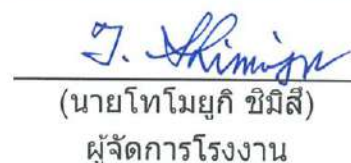 T. Shimizu
(นายโทโมยูกิ ชิมิสึ)
ผู้จัดการโรงงาน